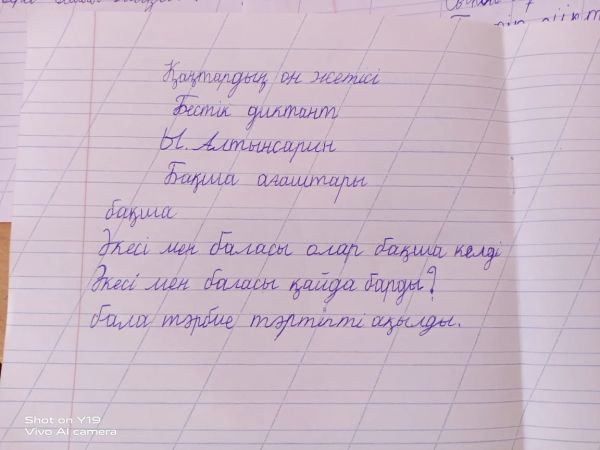 Қаңтардың он жетісі
Бестік диктант
Ы. Алтынсарин
Бақша ағаштары
бақша
Әкесі мен баласы олар бақша келді
Әкесі мен баласы қайда барды?
бала тәрбие тәртіпті ақылды.
Shot on Y19
Vivo AI camera